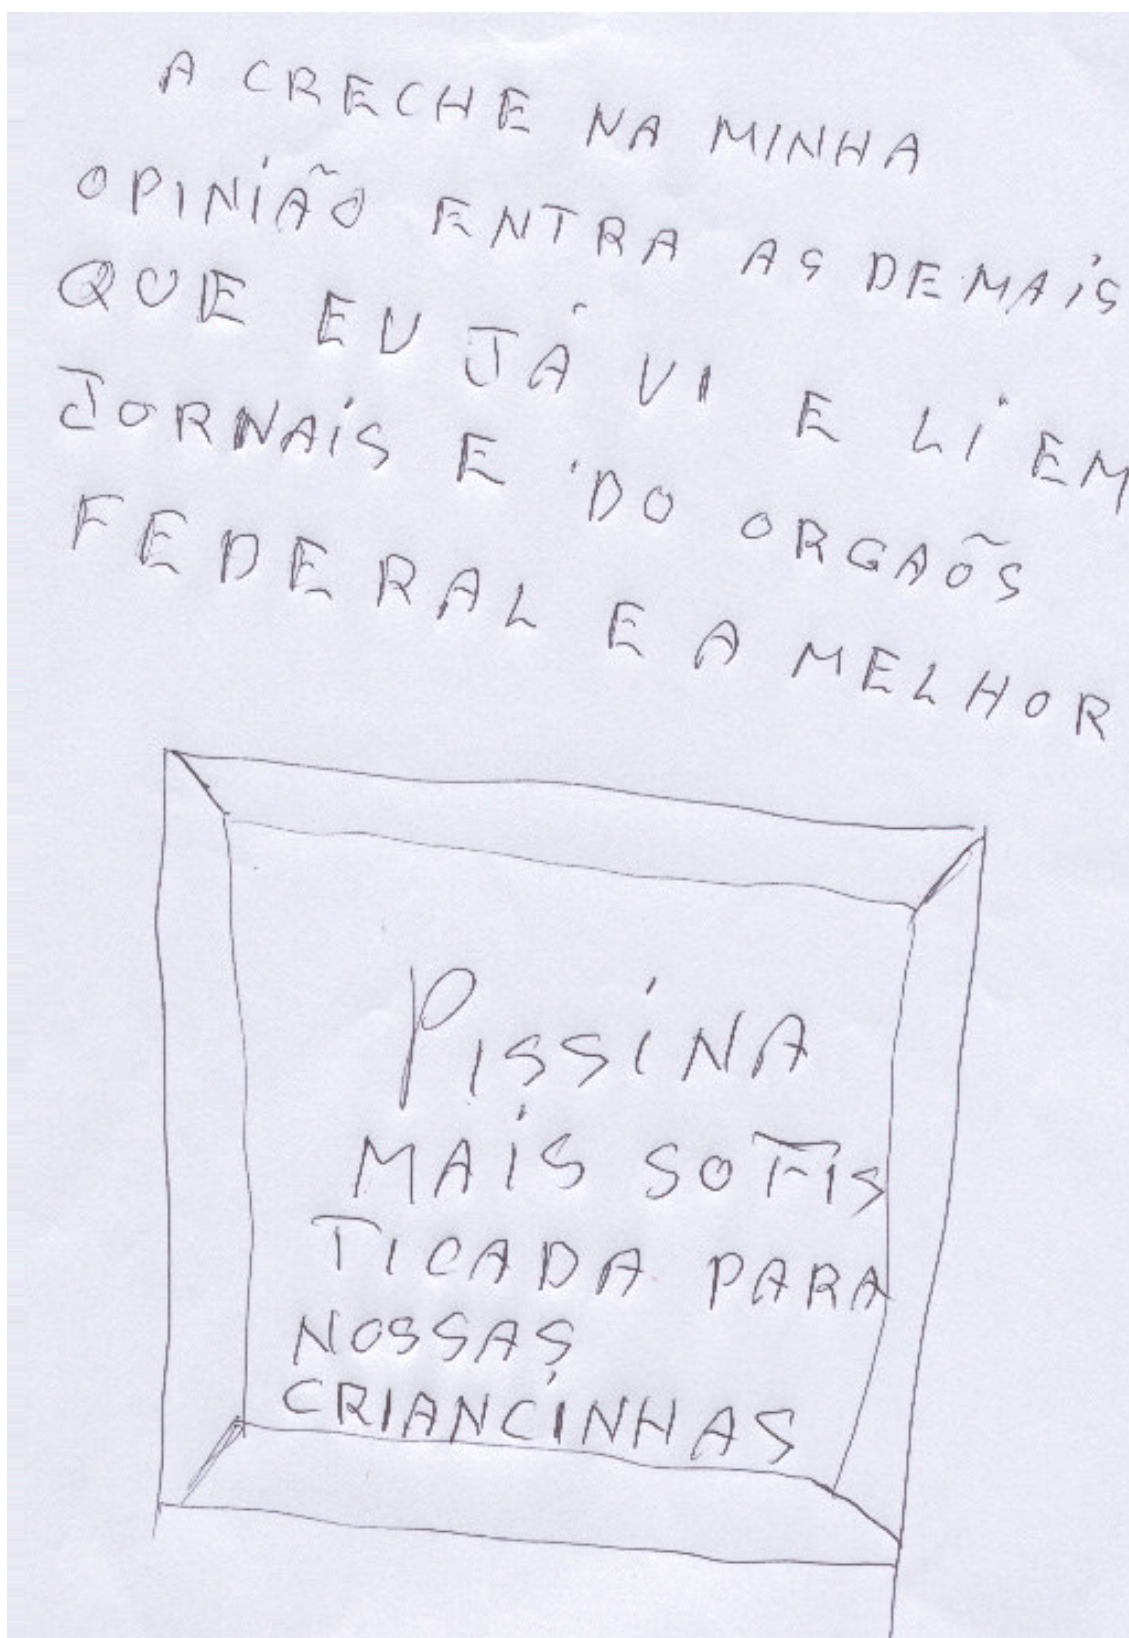 A CRECHE NA MINHA
OPINIÃO ENTRA AS DEMAIS
QUE EU JÁ VI E LI EM
JORNAIS E DO ORGAÕS
FEDERAL E A MELHOR
PISSINA
MAIS SOFIS
TICADA PARA
NOSSAS
CRIANCINHAS